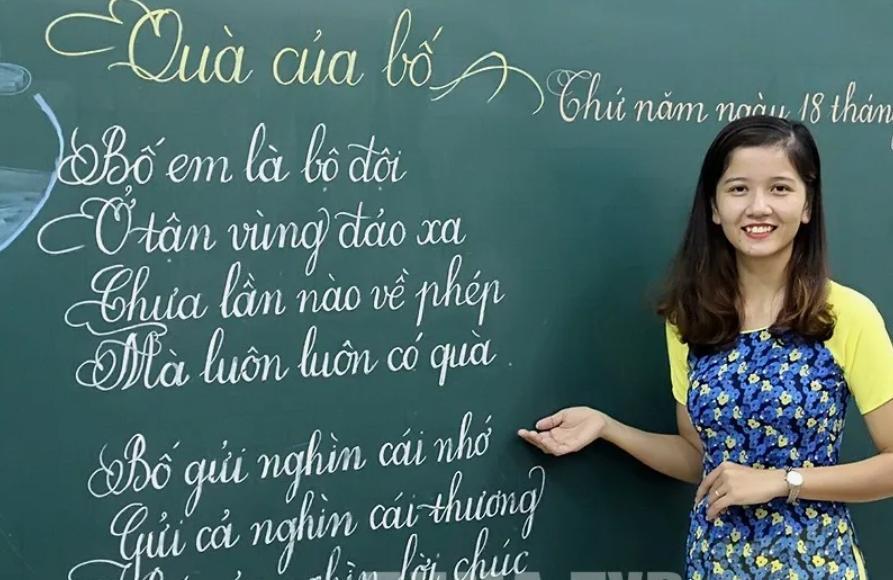 Quà của bố
Thứ năm ngày 18 thán
Bố em là bộ đội
Ở tận vùng đảo xa
Chưa lần nào về phép
Mà luôn luôn có quà
Bố gửi nghìn cái nhớ
Gửi cả nghìn cái thương
nghìn lời chúc